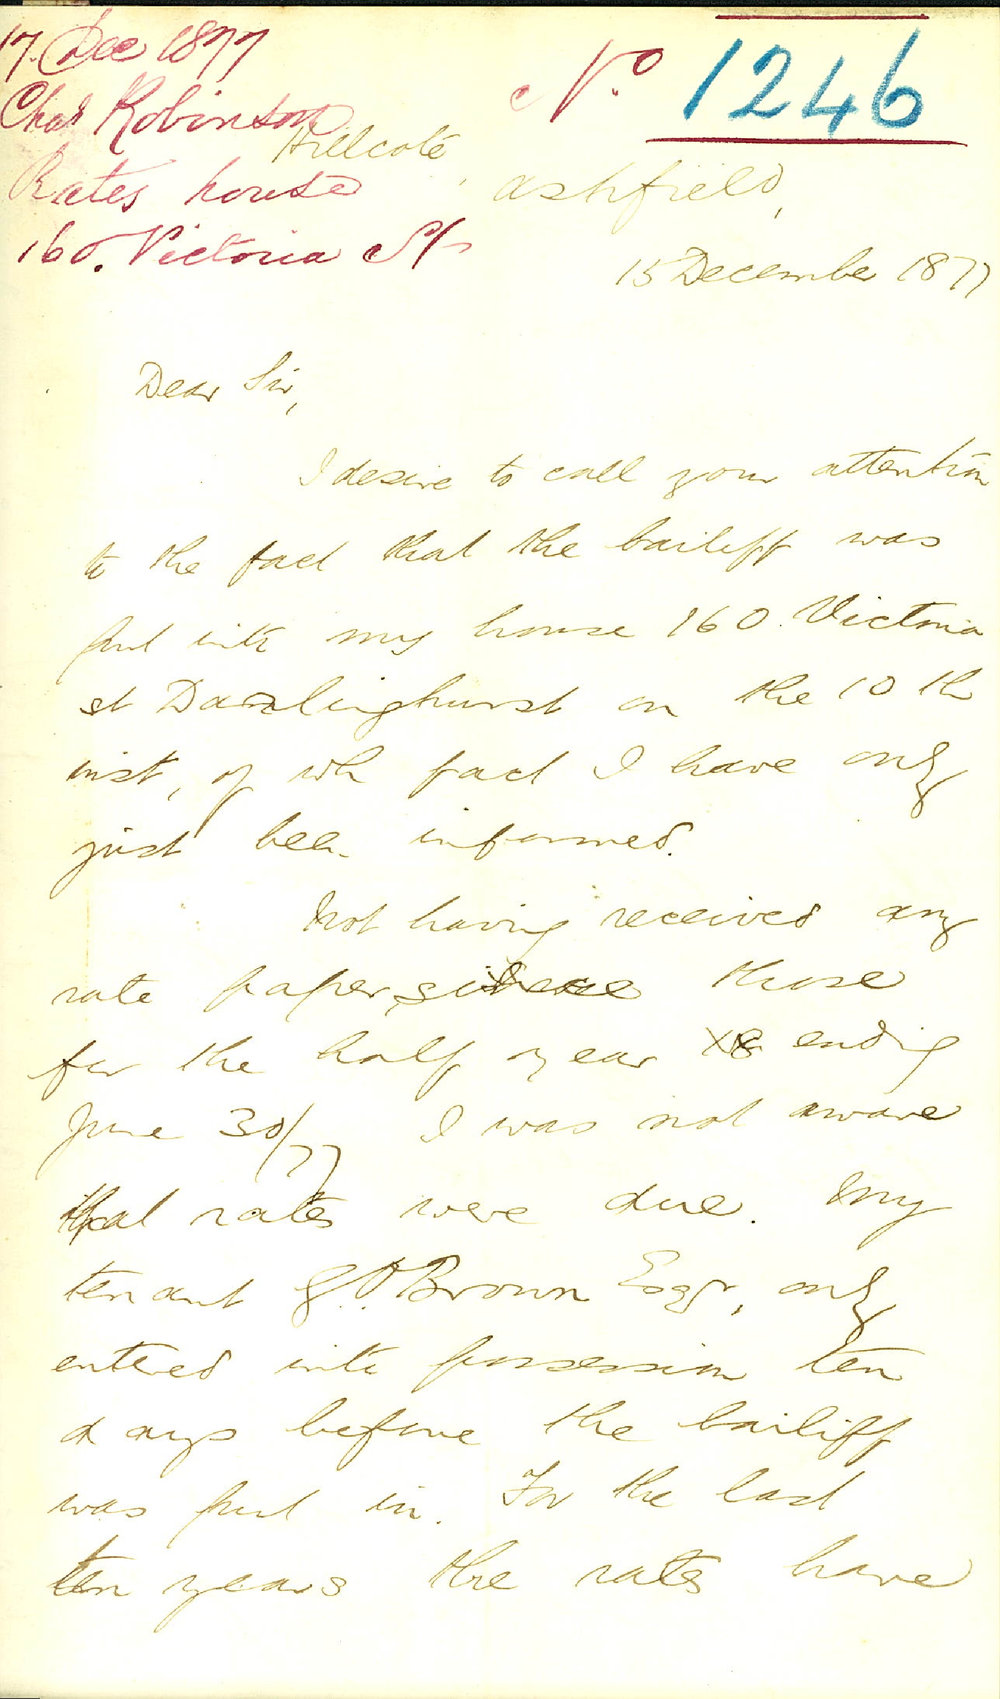 17. Dec 1877
Chas Robinson
Rates house
160. Victoria St
No 1246
Hillcote
Ashfield,
15 December 1877
Dear Sir,
I desire to call your attention
to the fact that the bailiff was
put into my house 160. Victoria
st Darlinghurst on the 10 th
inst, of wh fact I have only
just been informed.
Not having received any
rate papers, since those
for the half year ending
June 30/77 I was not aware
that rates were due. My
tenant Brown Esqr, only
entered into possession ten
days before the bailiff
was put in. For the last
ten years the rates have